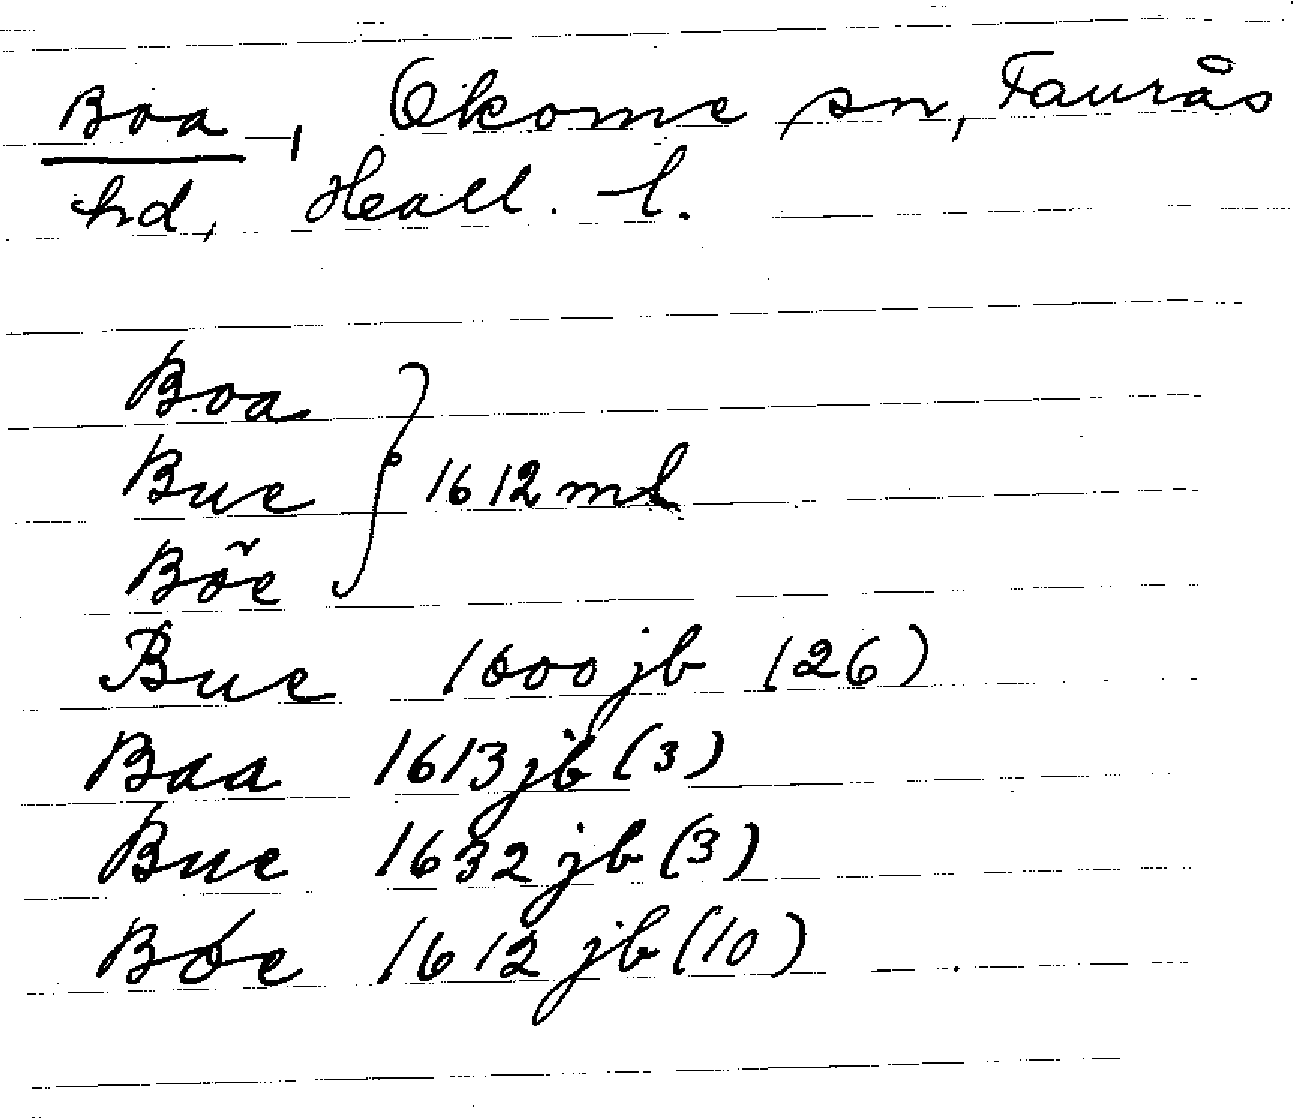 Boa, Okome sn, Faurås
hd, Hall. l.
Boa
Bue } 1612 ml
Bõe
Bue 1600 jb (26)
Baa 1613 jb (3)
Bue 1632 jb (3)
Bøe 1612 jb (10)